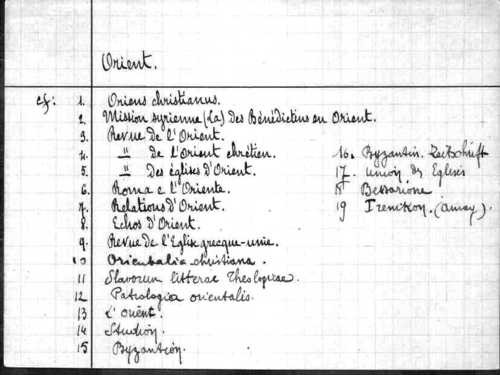 Orient.
cf: 1. Oriens christianus.
2. Mission syrienne (La) des Bénédictins en Orient.
3. Revue de l'Orient.
4. " de l'Orient chrétien.
5. " des églises d'Orient.
6. Roma e l'Oriente.
7. Relations d'Orient.
8. Echos d'Orient.
9. Revue de l'Eglise grecque-unie.
10 Orientalia christiana.
11 Slavorum litterae theologicae.
12 Patrologia orientalis.
13 L'orient.
14 Studion.
15 Byzantion.
16. Byzantin. Zeitschrift
17. Union des Eglises
18 Bessarione
19 Irenikon. (Amay).